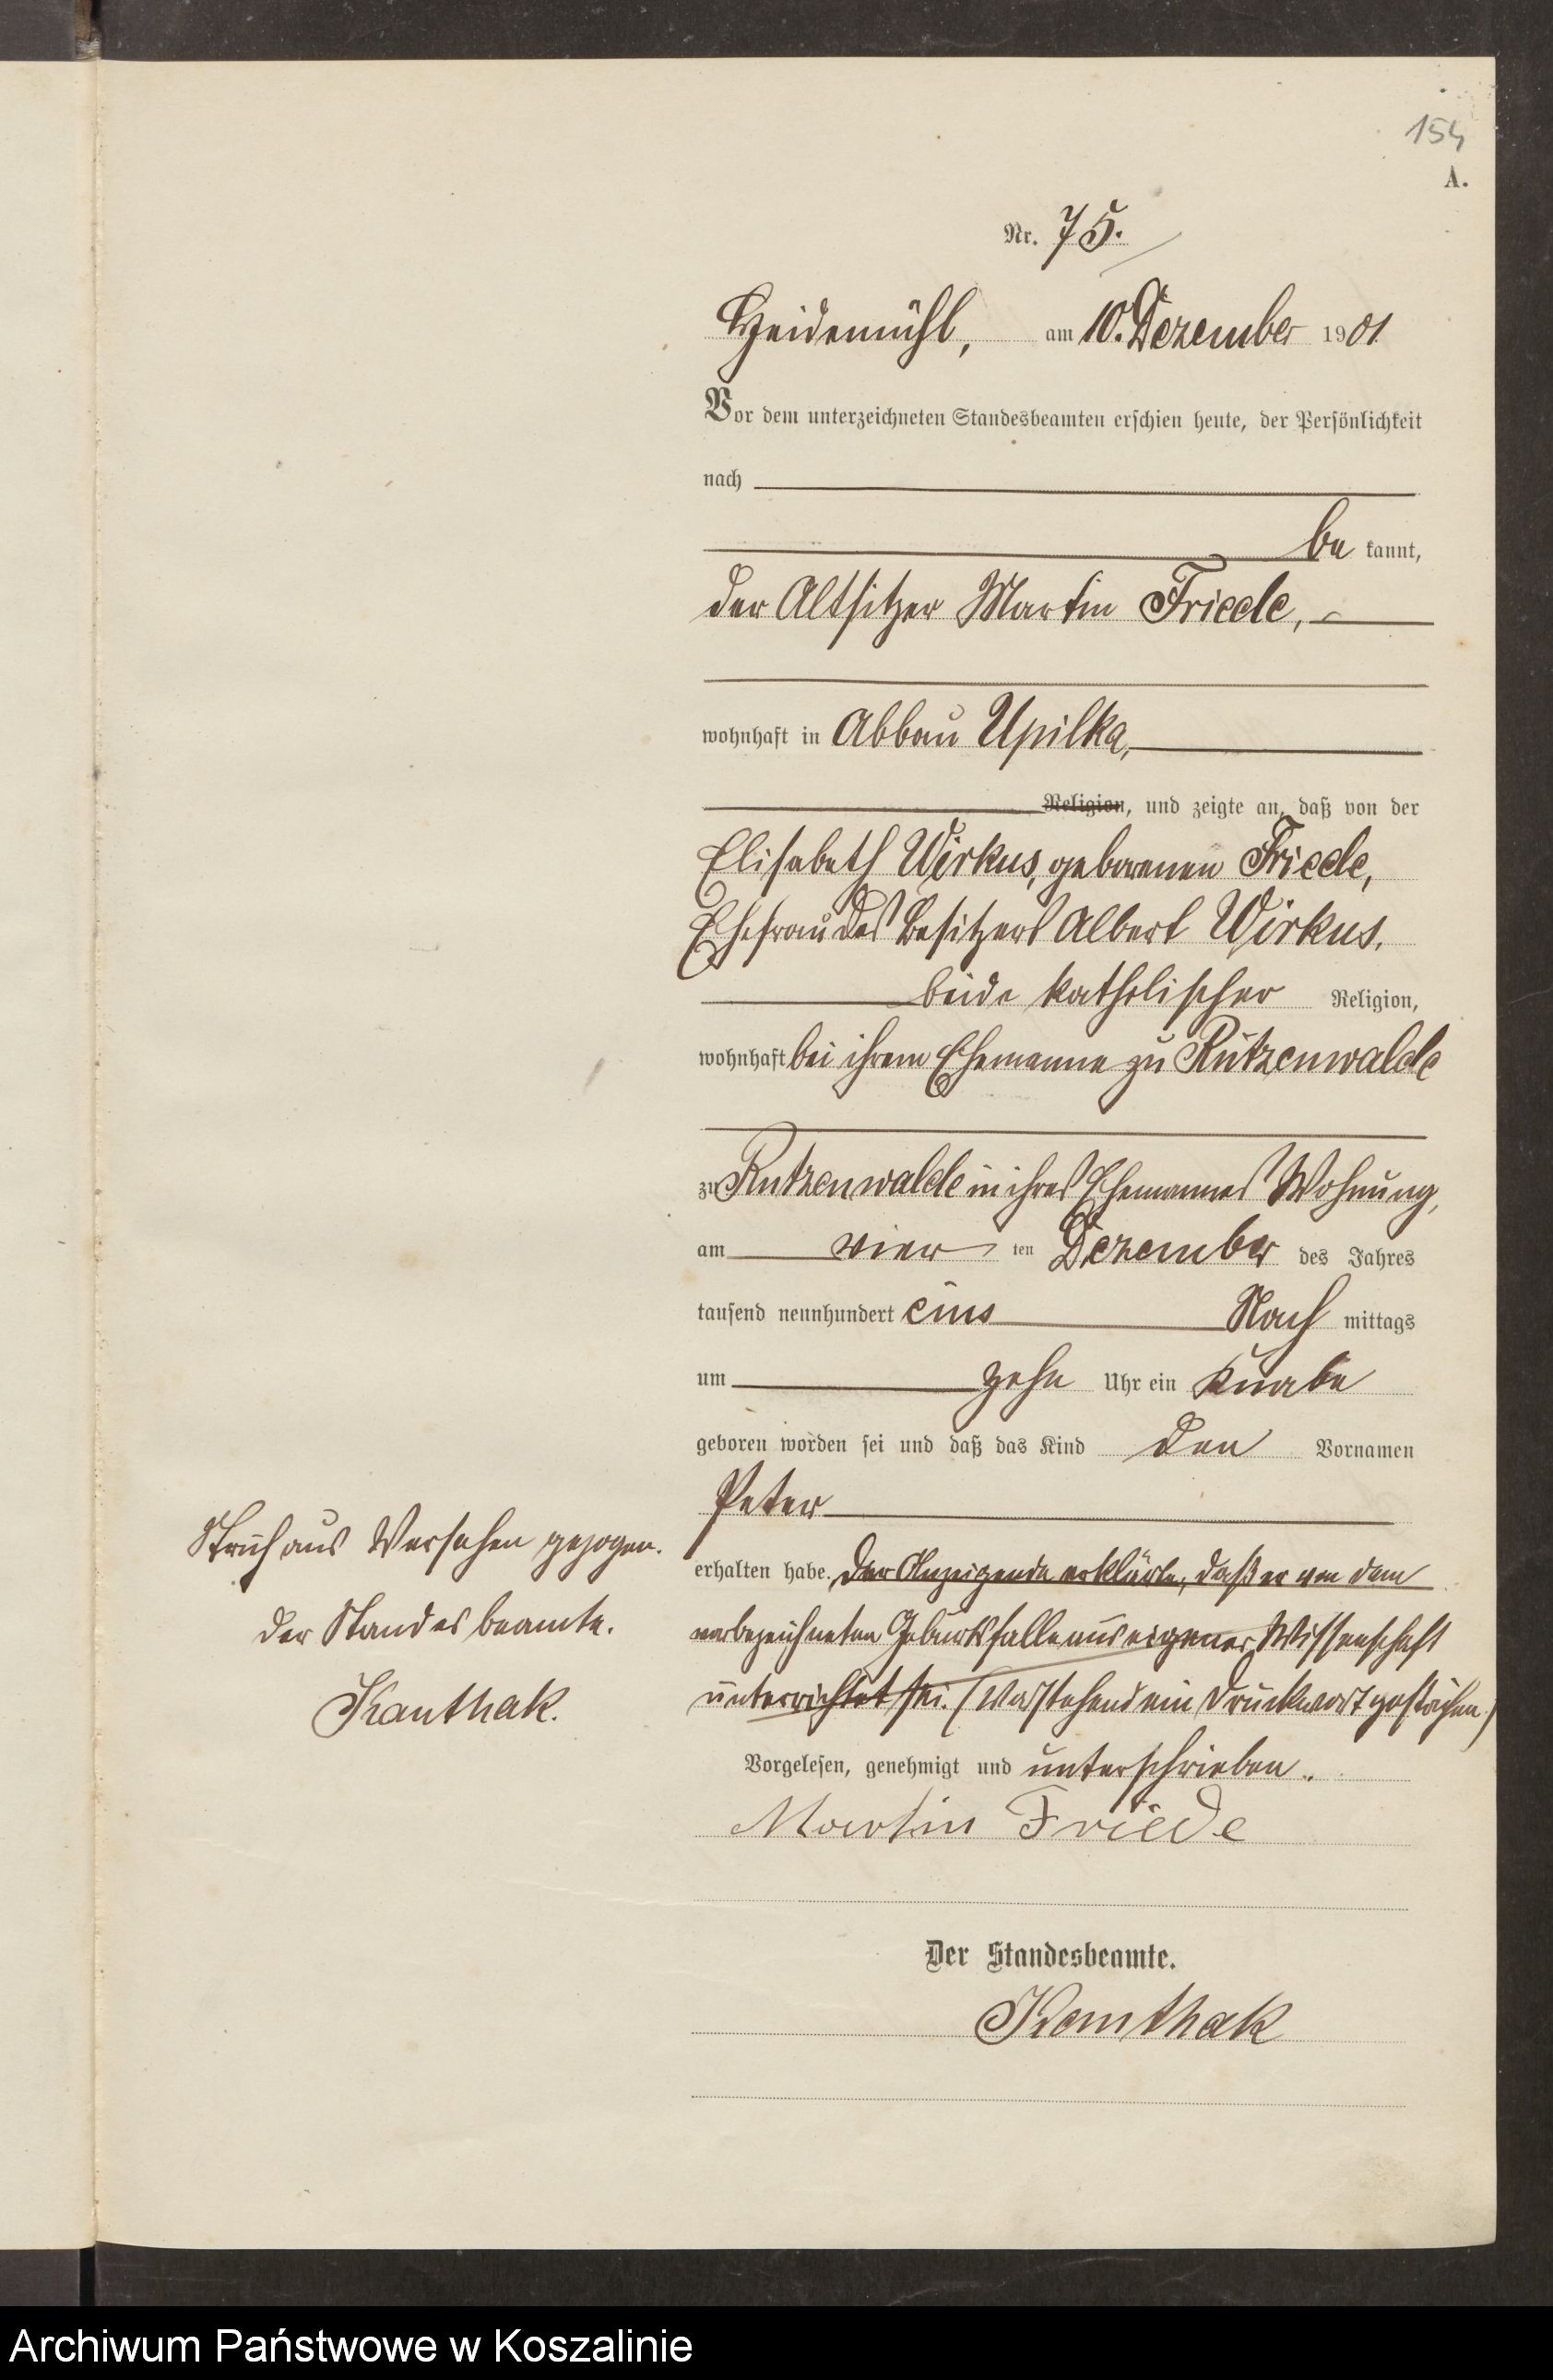 154
A.
Nr. 75.
Heidemühl, am 10. Dezember 1901
Vor dem unterzeichneten Standesbeamten erschien heute, der Persönlichkeit
nach
be kannt,
der Altsitzer Martin Friede,
wohnhaft in Abbau Upilka,
Religion, und zeigte an, daß von der
Elisabeth Wirkus, geborenen Friede,
Ehefrau des Besitzers Albert Wirkus,
beide katholischer Religion,
wohnhaft bei ihrem Ehemanne zu Rutzenwalde
zu Rutzenwalde in ihres Ehemannes Wohnung,
am vier ten Dezember des Jahres
tausend neunhundert eins Nach mittags
um zehn Uhr ein Knabe
geboren worden sei und daß das Kind den Vornamen
Peter
erhalten habe. Der Anzeigende erklärte, daß er von dem
vorbezeichneten Geburtsfalle aus eigener Wissenschaft
unterrichtet sei. (Vorstehend ein Druckwort gestrichen.)
Strich aus Versehen gezogen.
Der Standesbeamte.
Kanthak.
Vorgelesen, genehmigt und unterschrieben.
Martin Friede
Der Standesbeamte.
Kanthak
Archiwum Państwowe w Koszalinie